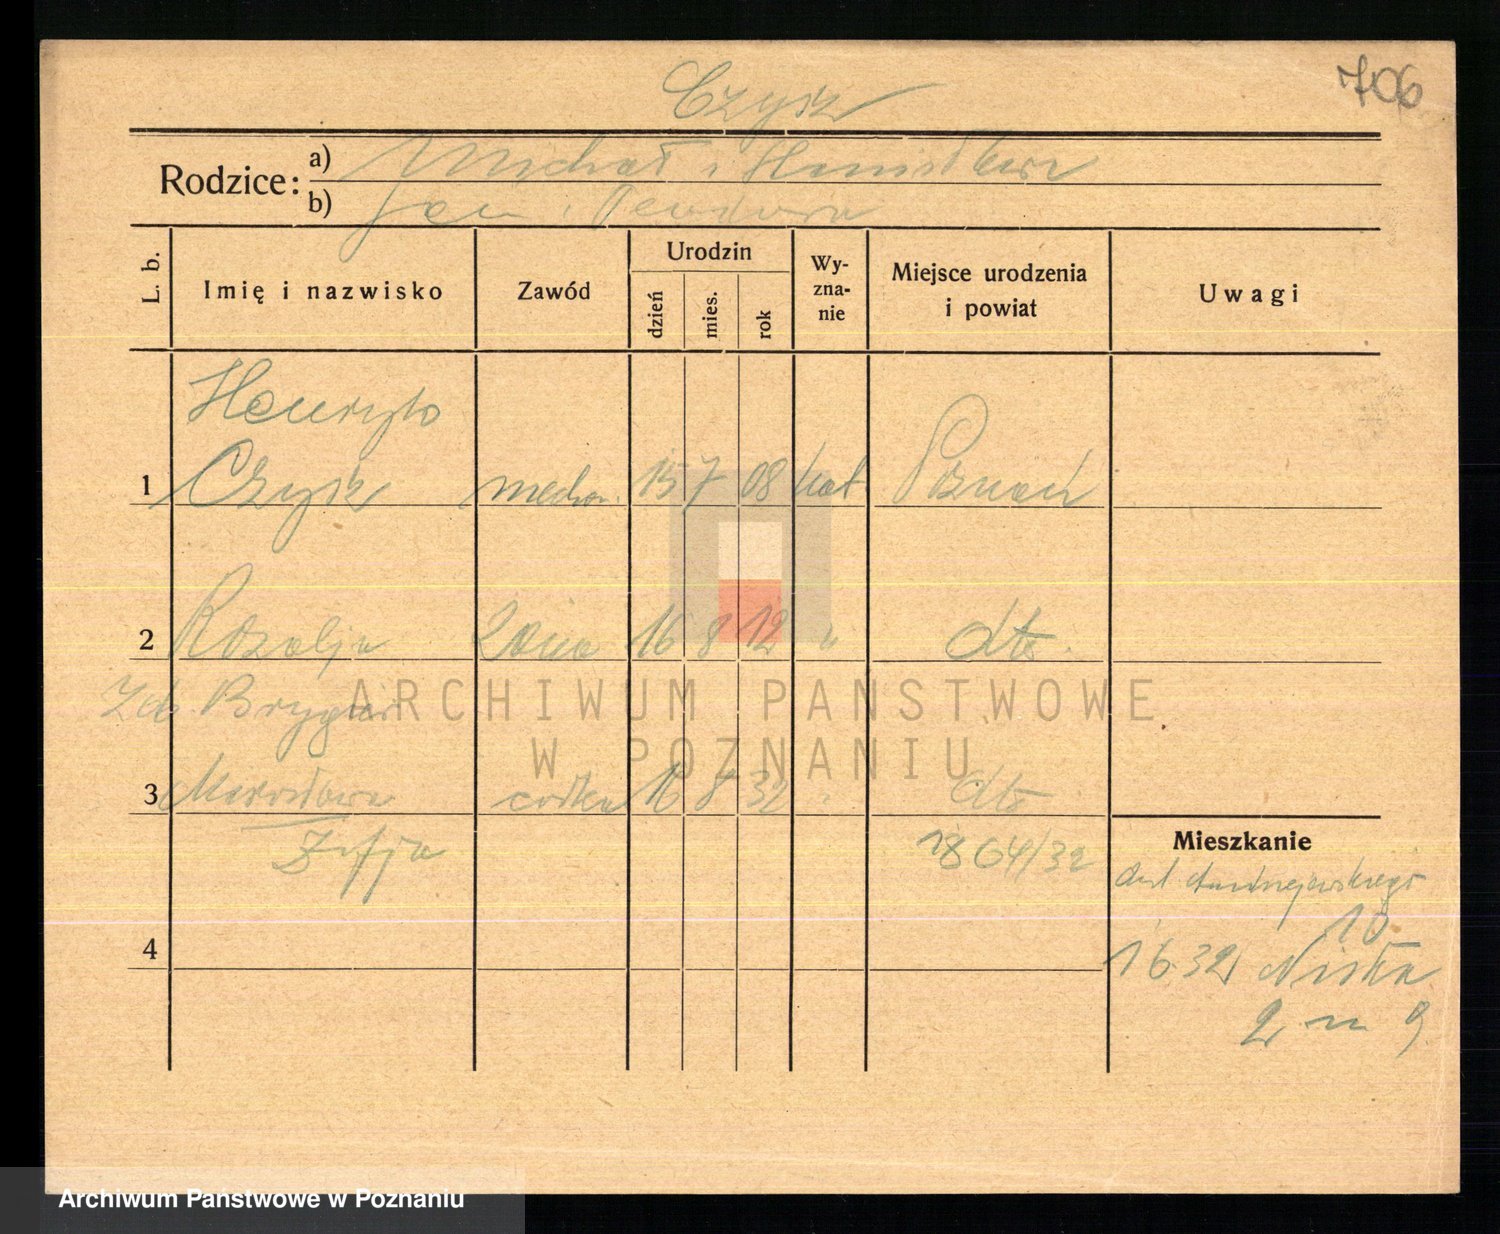 706
Czysz
Rodzice:
a) Michał i Stanisława
b) Jan i Teodora
L. b.
Imię i nazwisko
Zawód
Urodzin
dzień
mies.
rok
Wy-
zna-
nie
Miejsce urodzenia
i powiat
Uwagi
Henryk
1 Czysz mechan. 15 7 08 kat. Poznań
2 Rozalja żona 16 8 12 " dto.
3 Mirosława córka 16 8 32 " dto
Zofja
1864/32
Mieszkanie
10
4
1632 Niska
2 m 9
ARCHIWUM PANSTWOWE
W POZNANIU
Archiwum Państwowe w Poznaniu